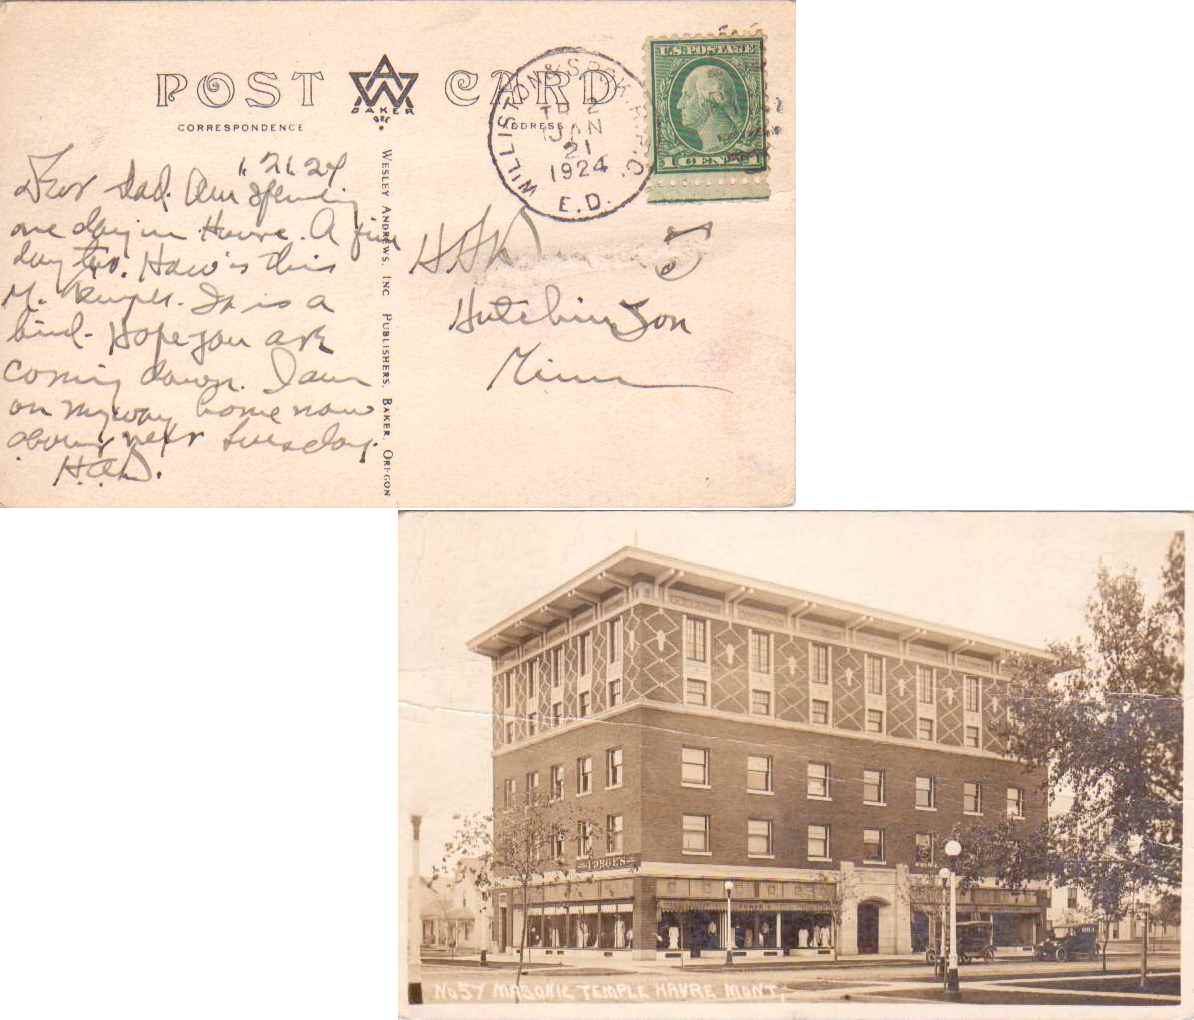 POST CARD
BAKER
ORE
CORRESPONDENCE
ADDRESS
WILLISTON & SPOK. R.P.O.
TR 2
JAN
21
1924
E.D.
U.S. POSTAGE
1 CENT 1
Dear Dad. Am spending
one day in Havre. A fine
day too. How's this
M. Temple. It is a
bird - Hope you are
coming down. I am
on my way home now
next Tuesday.
H.A.D.
WESLEY ANDREWS, INC PUBLISHERS, BAKER, OREGON
Hutchinson
Minn
No 57 MASONIC TEMPLE HAVRE MONT.